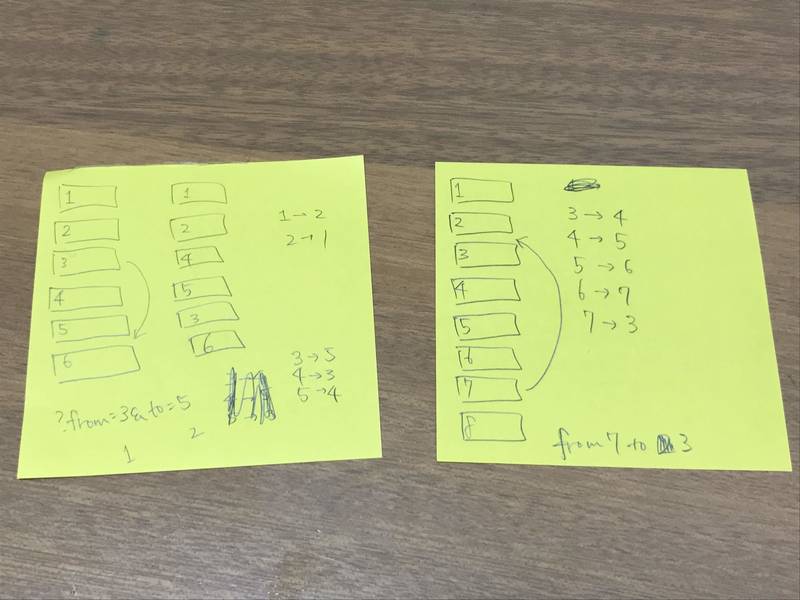 1
2
3
4
5
6
1
2
4
5
3
6
1→2
2→1
3→5
4→3
5→4
?from=3&to=5
1 2
1
2
3
4
5
6
7
8
3→4
4→5
5→6
6→7
7→3
from 7 to 3